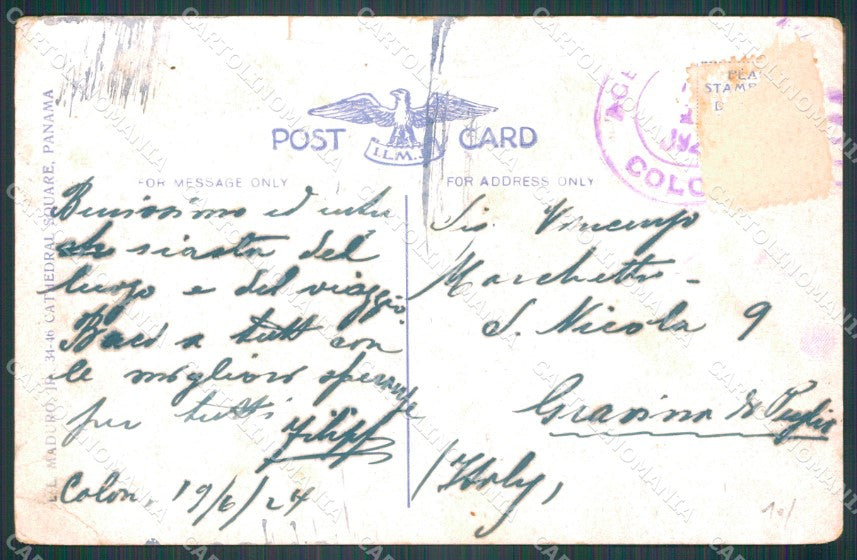 POST CARD
I.L.M. JR
FOR MESSAGE ONLY
FOR ADDRESS ONLY
I. L. MADURO JR. 34-46 CATHEDRAL SQUARE, PANAMA
AGE
COLO
PLA
STAMP
Benissimo ed entu
siasta del
luogo e del viaggio
Baci a tutti con
le migliori speranze
per tutti
Filippo
Colon, 19/6/24
Sig. Vincenzo
Marchetti
S. Nicola 9
Gravina di Puglia
(Italy)
10/
CARTOLINOMANIA